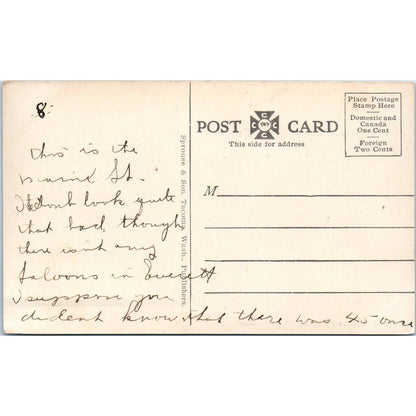 8
POST CARD
This side for address
Place Postage
Stamp Here
Domestic and
Canada
One Cent
Foreign
Two Cents
Sprouse & Son, Tacoma, Wash., Publishers.
M
this is the
St.
dont look quite
that bad though
there isnt any
saloons in Everett
I suppose you
dident know that there was 40 once